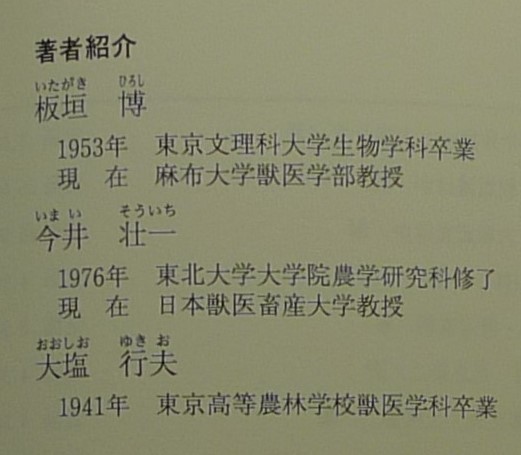 著者紹介
いたがき ひろし
板垣 博
1953年 東京文理科大学生物学科卒業
現在 麻布大学獣医学部教授
いまい そういち
今井 壮一
1976年 東北大学大学院農学研究科修了
現在 日本獣医畜産大学教授
おおしお ゆきお
大塩 行夫
1941年 東京高等農林学校獣医学科卒業